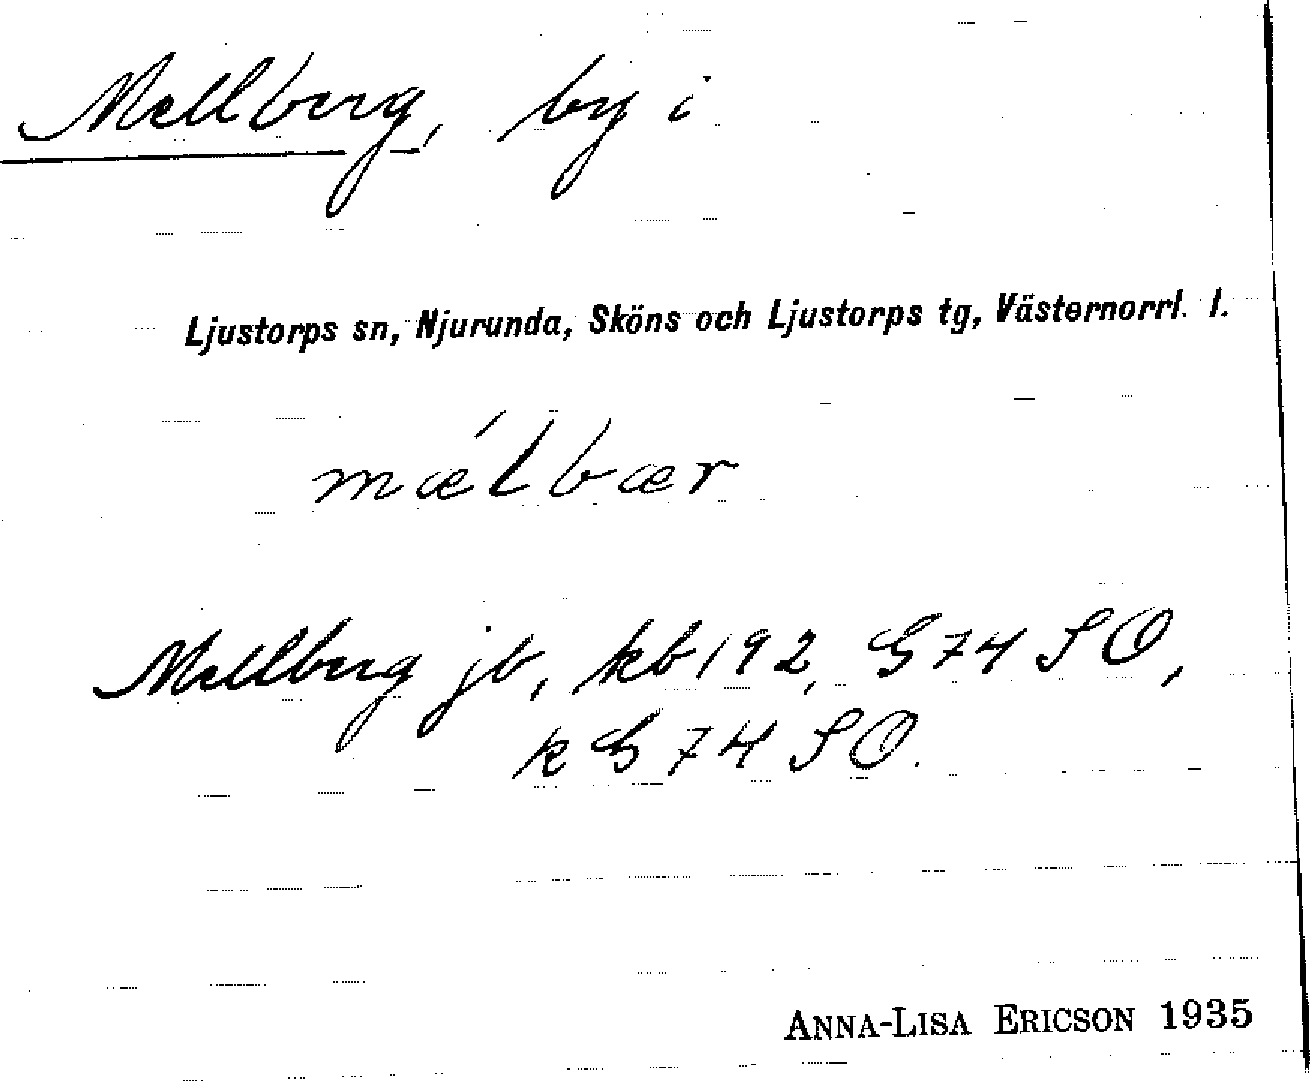 Mellberg, by i
Ljustorps sn, Njurunda, Sköns och Ljustorps tg, Västernorrl. l.
mǽlbær
Mellberg jb, kb 192, G 74 SO,
k G 74 SO.
ANNA-LISA ERICSON 1935